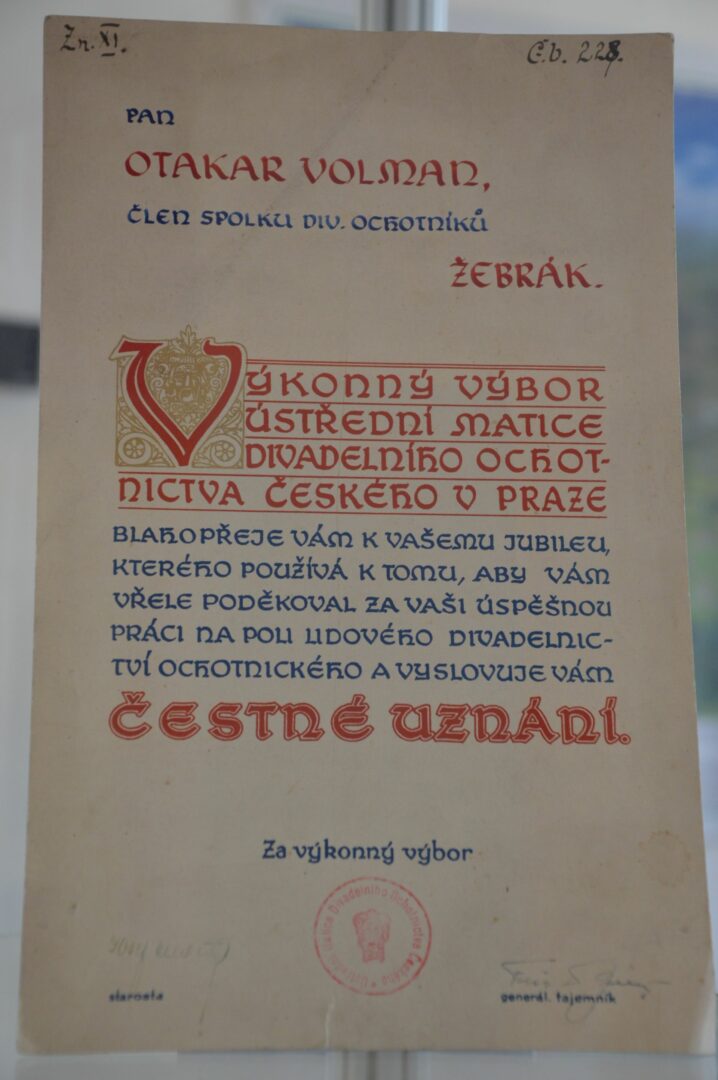 Zn. XI.
Č.b. 228.
PAN
OTAKAR VOLMAN,
ČLEN SPOLKU DIV. OCHOTNÍKŮ
ŽEBRÁK.
VÝKONNÝ VÝBOR
ÚSTŘEDNÍ MATICE
DIVADELNÍHO OCHOT-
NICTVA ČESKÉHO V PRAZE
BLAHOPŘEJE VÁM K VAŠEMU JUBILEU,
KTERÉHO POUŽÍVÁ K TOMU, ABY VÁM
VŘELE PODĚKOVAL ZA VAŠI ÚSPĚŠNOU
PRÁCI NA POLI LIDOVÉHO DIVADELNIC-
TVÍ OCHOTNICKÉHO A VYSLOVUJE VÁM
ČESTNÉ UZNÁNÍ.
Za výkonný výbor
Ústřední Matice Divadelního Ochotnictva Českého
starosta
generál. tajemník